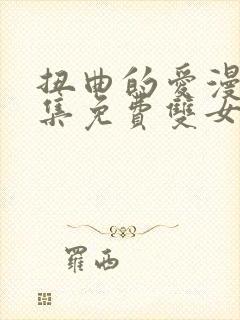 扭曲的愛漫
集免費雙女
羅西